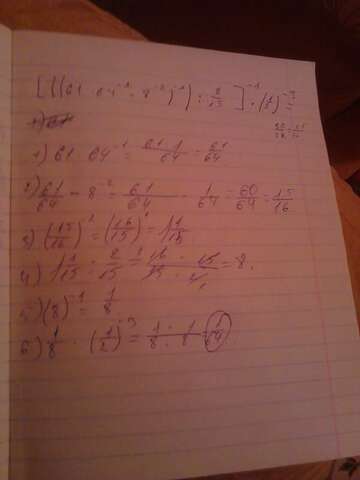 [((61 · 64⁻¹ - 8⁻²)⁻¹) : 2/15]⁻¹ · (1/2)⁻³ =
1) 61 · 64⁻¹ = 61 · 1/64 = 61/64
2) 61/64 - 8⁻² = 61/64 - 1/64 = 60/64 = 15/16
3) (15/16)⁻¹ = (16/15)¹ = 1 1/15
4) 1 1/15 : 2/15 = 16/15 · 15/2 = 8.
5) (8)⁻¹ = 1/8
6) 1/8 · (1/2)⁻³ = 1/8 · 1/8 = 1/64